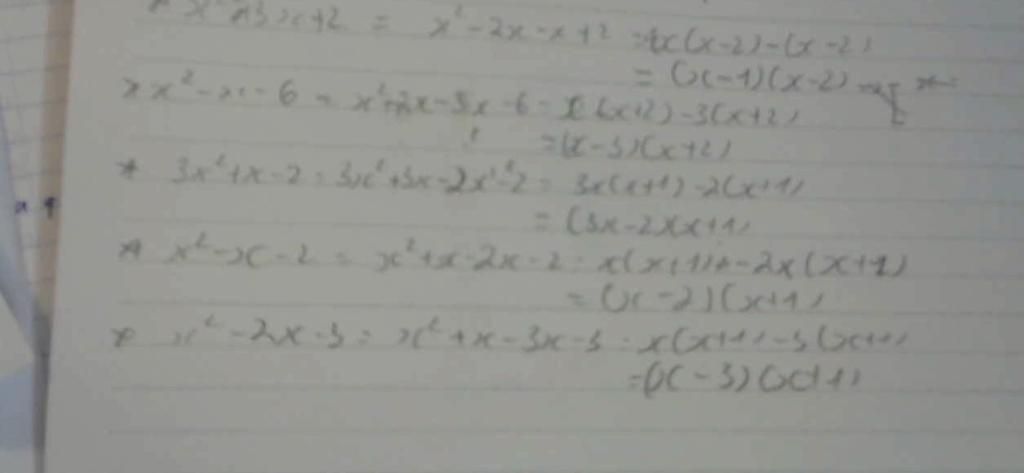 * x² - 3x+2 = x² - 2x - x + 2 = x(x-2) - (x-2)
= (x-1)(x-2)
* x² - x - 6 = x² + 2x - 3x - 6 = x(x+2) - 3(x+2)
= (x-3)(x+2)
* 3x² + x - 2 = 3x² + 3x - 2x - 2 = 3x(x+1) - 2(x+1)
= (3x-2)(x+1)
* x² - x - 2 = x² + x - 2x - 2 = x(x+1) - 2x(x+1)
= (x-2)(x+1)
* x² - 2x - 3 = x² + x - 3x - 3 = x(x+1) - 3(x+1)
= (x-3)(x+1)